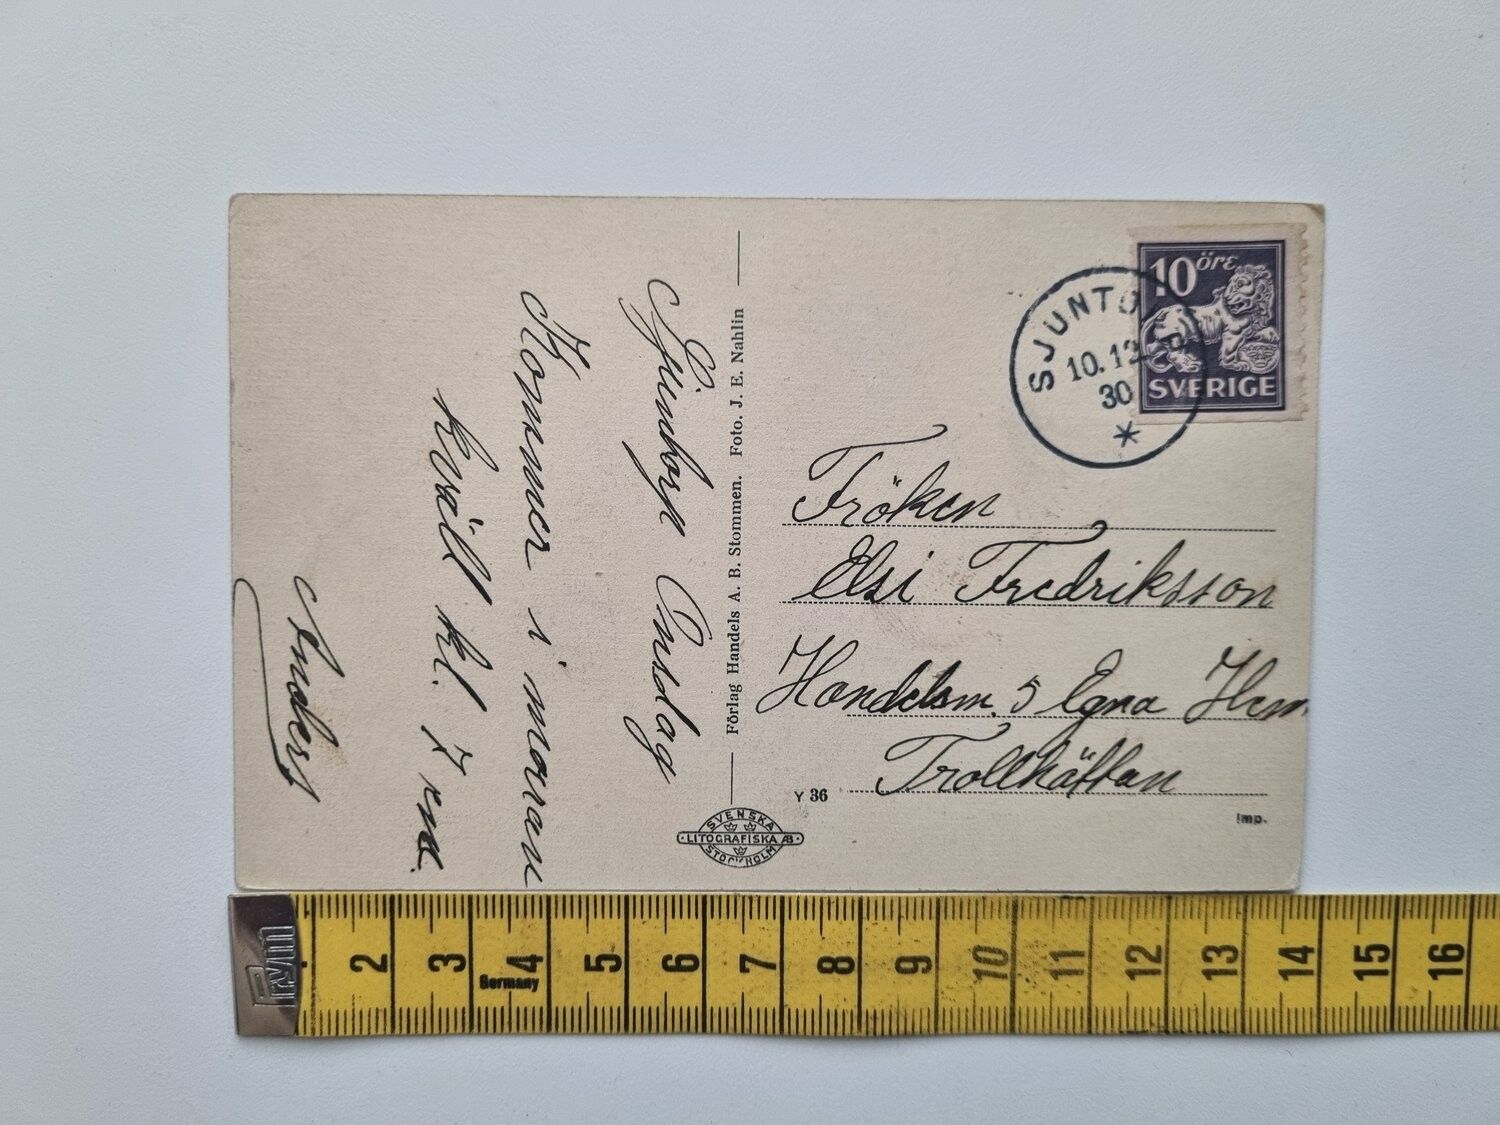 Sjuntorp Onsdag
Kommer i morgon
kväll kl. 7 em.
Anders
Förlag Handels A. B. Stommen. Foto. J. E. Nahlin
10 öre
SVERIGE
SJUNTO
10.12
30
Fröken
Elsi Fredriksson
Handelsm. 5 Egna Hem
Trollhättan
Y 36
Imp.
SVENSKA
LITOGRAFISKA AB
STOCKHOLM
Prym
Germany
2 3 4 5 6 7 8 9 10 11 12 13 14 15 16